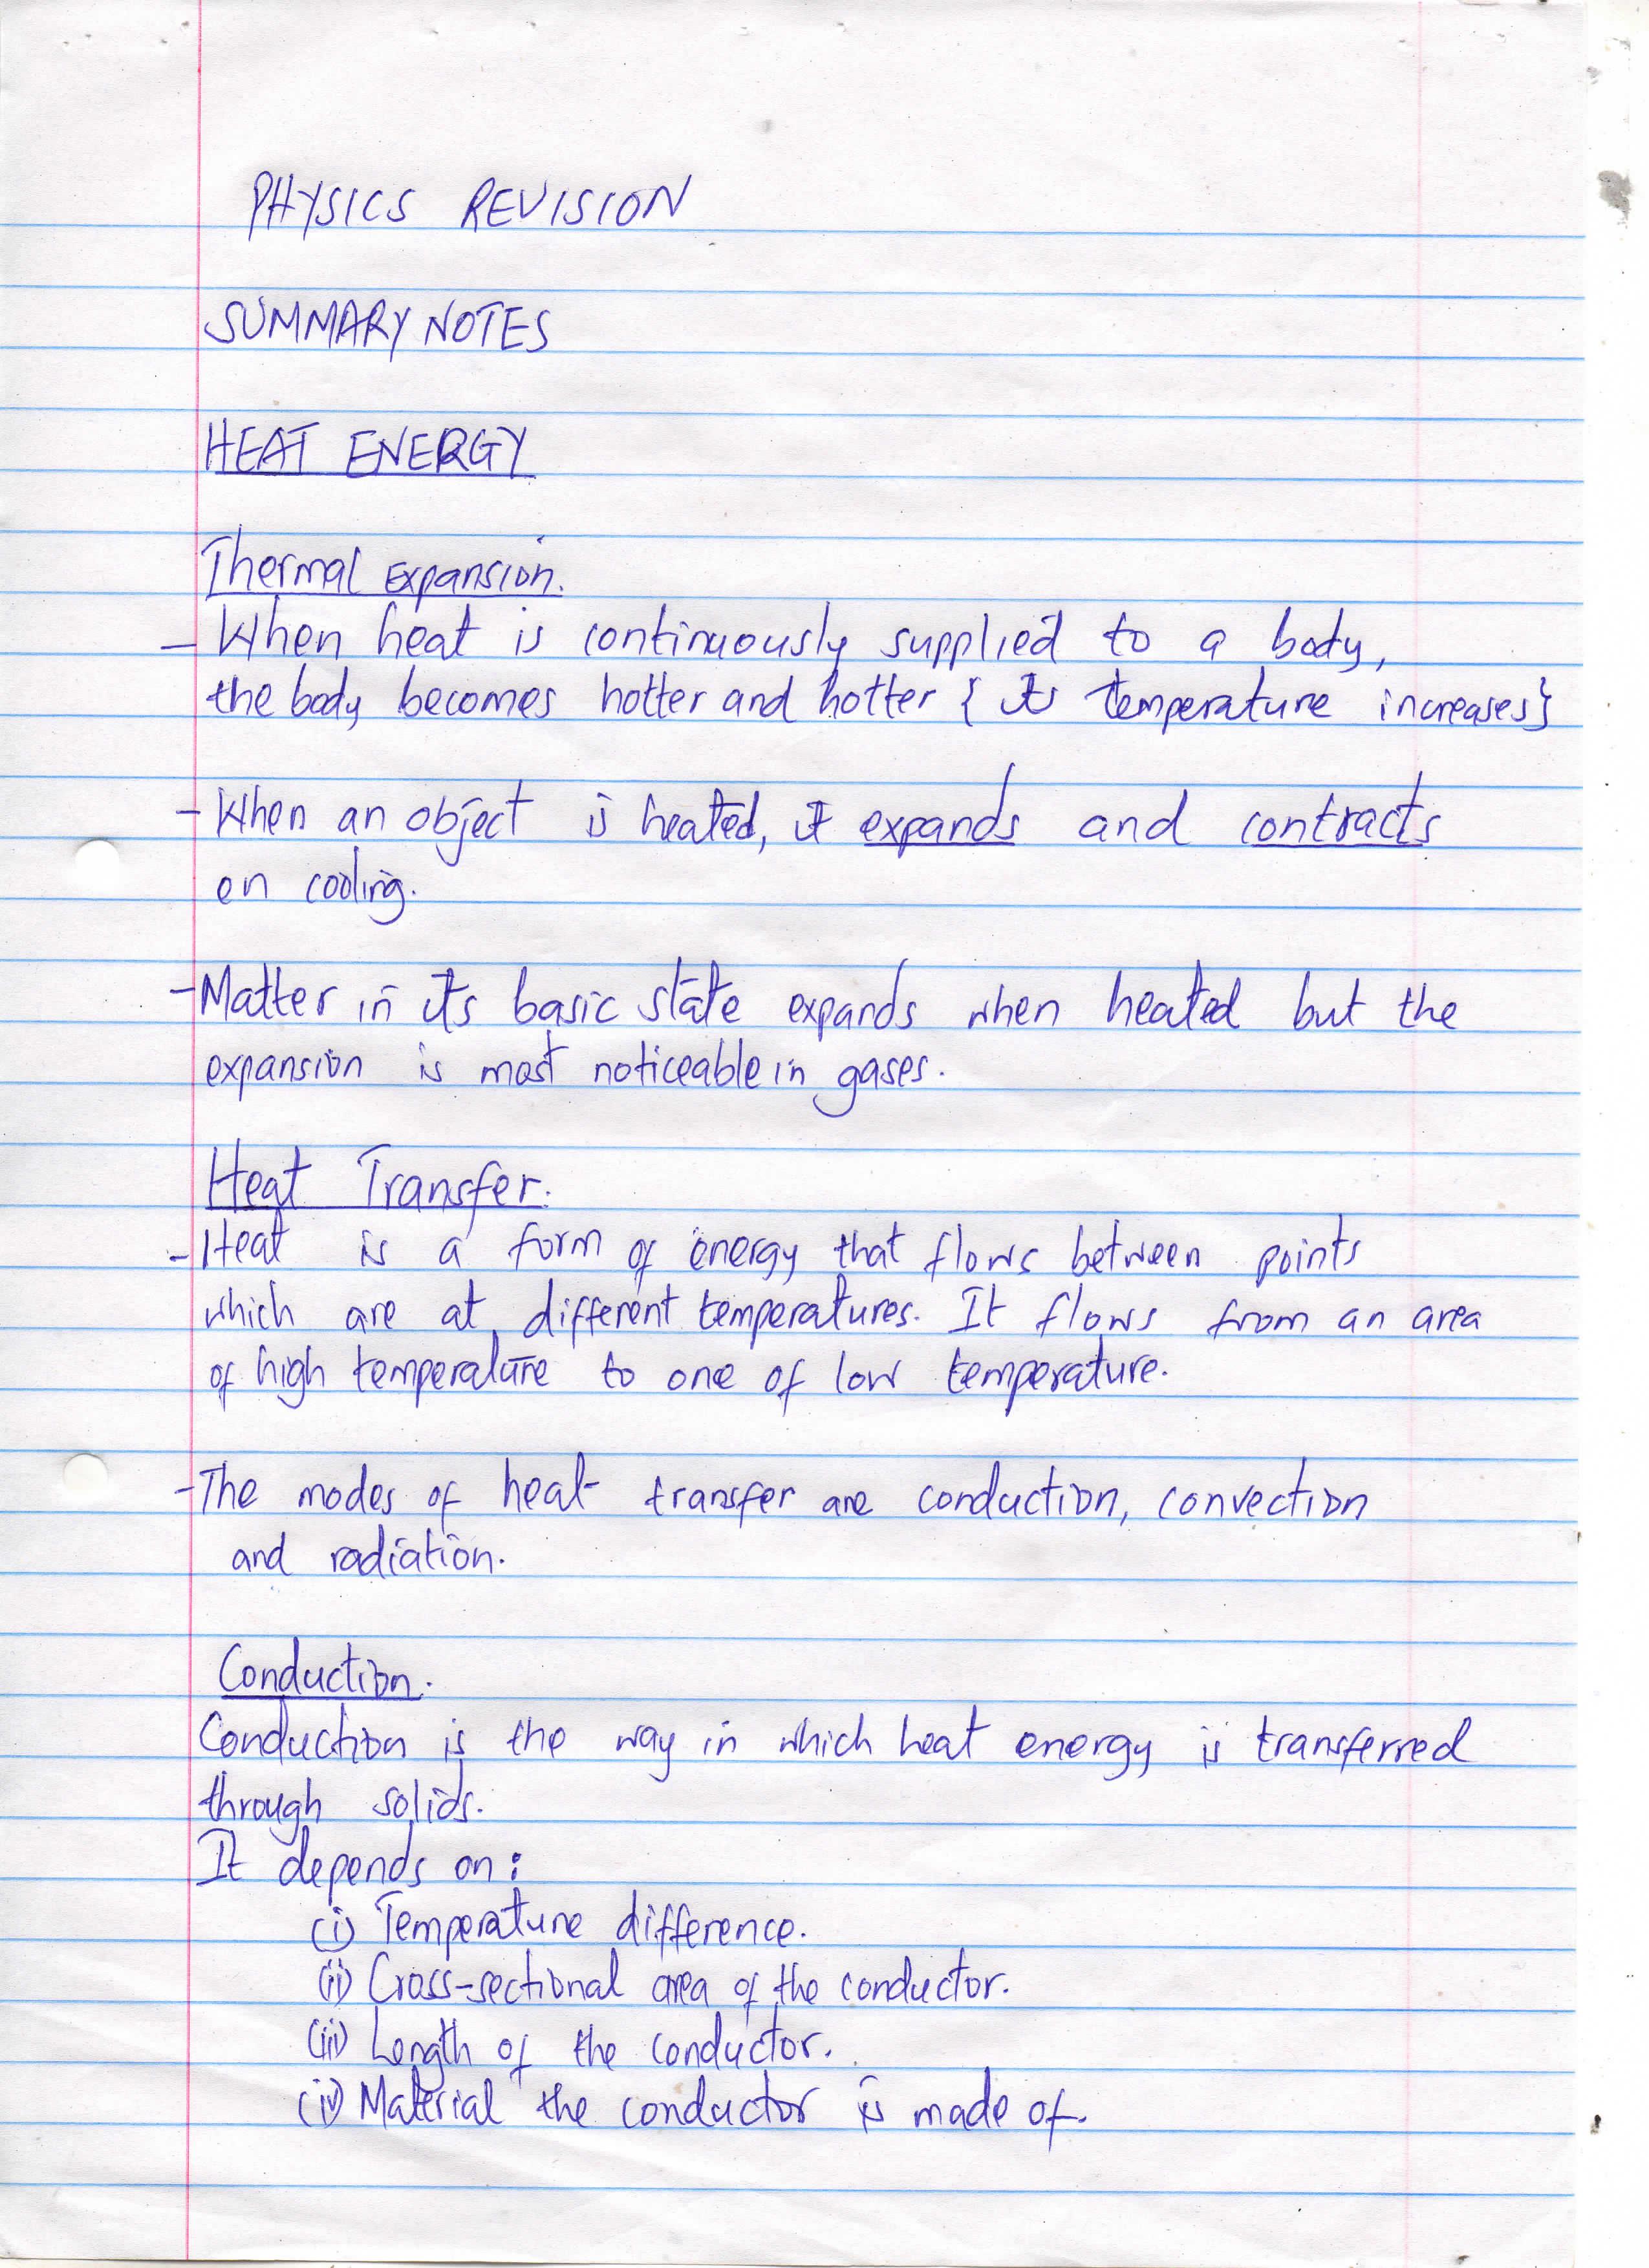 PHYSICS REVISION
SUMMARY NOTES
HEAT ENERGY
Thermal Expansion.
- When heat is continuously supplied to a body,
the body becomes hotter and hotter { its temperature increases}
- When an object is heated, it expands and contracts
on cooling.
- Matter in its basic state expands when heated but the
expansion is most noticeable in gases.
Heat Transfer.
- Heat is a form of energy that flows between points
which are at different temperatures. It flows from an area
of high temperature to one of low temperature.
- The modes of heat transfer are conduction, convection
and radiation.
Conduction.
Conduction is the way in which heat energy is transferred
through solids.
It depends on:
(i) Temperature difference.
(ii) Cross-sectional area of the conductor.
(iii) Length of the conductor.
(iv) Material the conductor is made of.